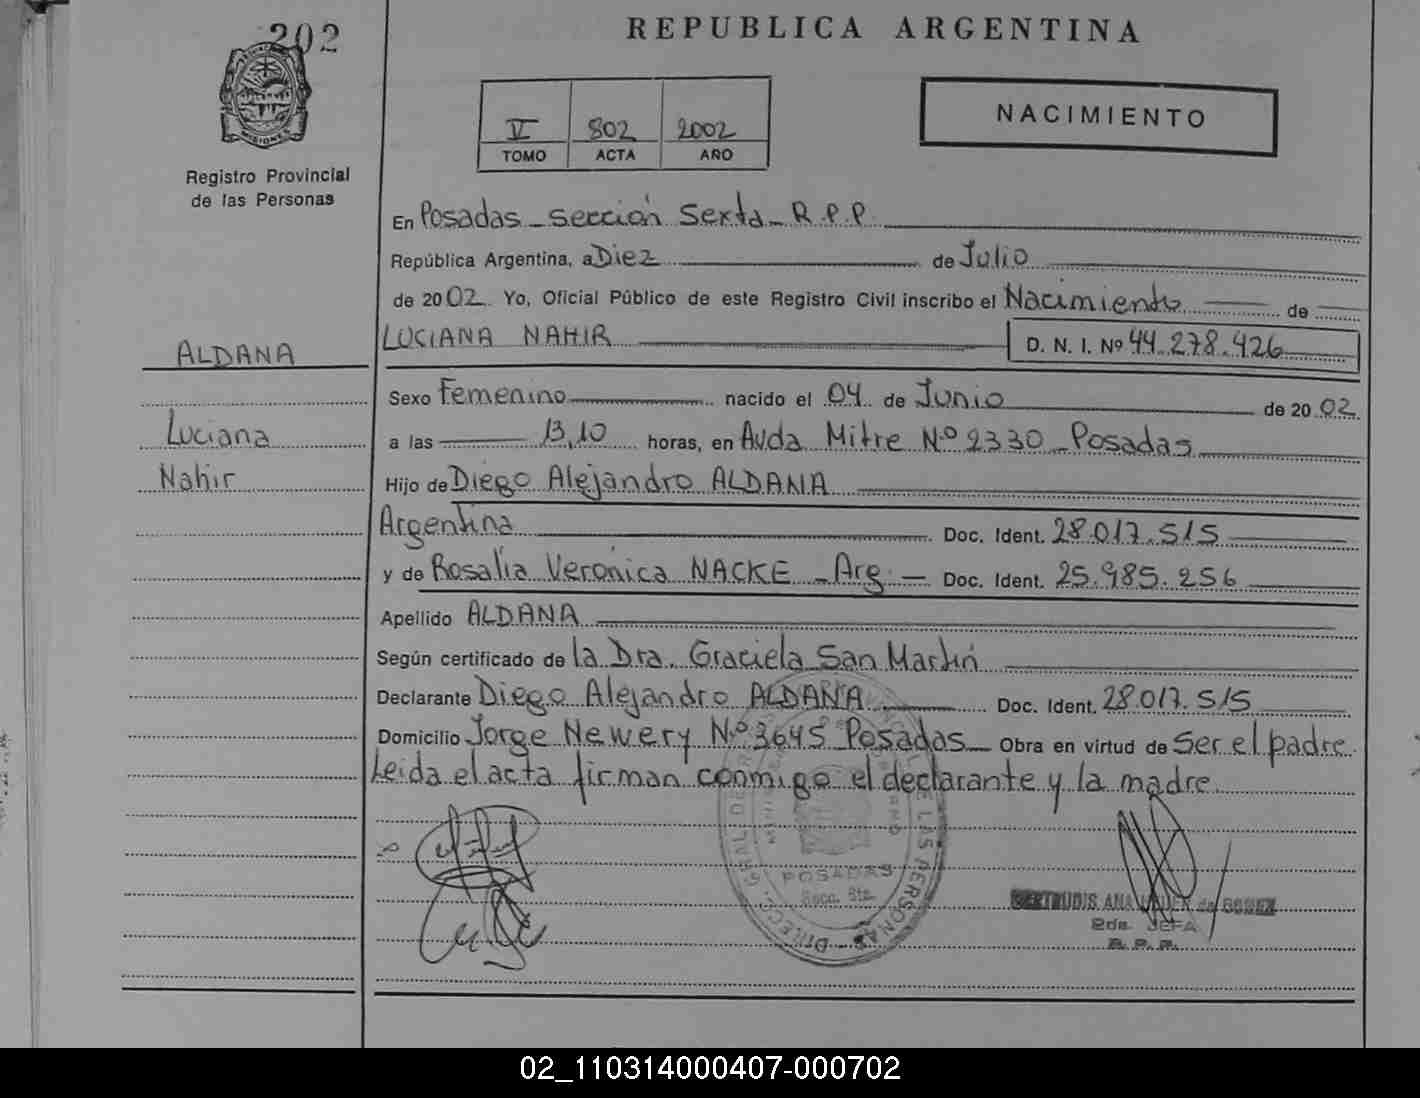 202
REPUBLICA ARGENTINA
MISIONES
Registro Provincial
de las Personas
V 802 2002
TOMO ACTA AÑO
NACIMIENTO
En Posadas - sección Sexta - R.P.P.
República Argentina, a Diez de Julio
de 2002 Yo, Oficial Público de este Registro Civil inscribo el Nacimiento de
ALDANA
LUCIANA NAHIR D. N. I. Nº 44.278.426
Sexo Femenino nacido el 04 de Junio de 2002
Luciana
a las 13,10 horas, en Avda Mitre N.º 2330 - Posadas
Nahir
Hijo de Diego Alejandro ALDANA
Argentina Doc. Ident. 28.017.515
y de Rosalía Veronica NACKE - Arg. - Doc. Ident. 25.985.256
Apellido ALDANA
Según certificado de la Dra. Graciela San Martín
Declarante Diego Alejandro ALDANA Doc. Ident. 28.017.515
Domicilio Jorge Newery N.º 3645 Posadas Obra en virtud de Ser el padre.
Leida el acta firman conmigo el declarante y la madre.
DE LAS PERSONAS
POSADAS
Secc. 6ta.
GERTRUDIS ANA de GOMEZ
2da. JEFA
R.P.P.
02_110314000407-000702